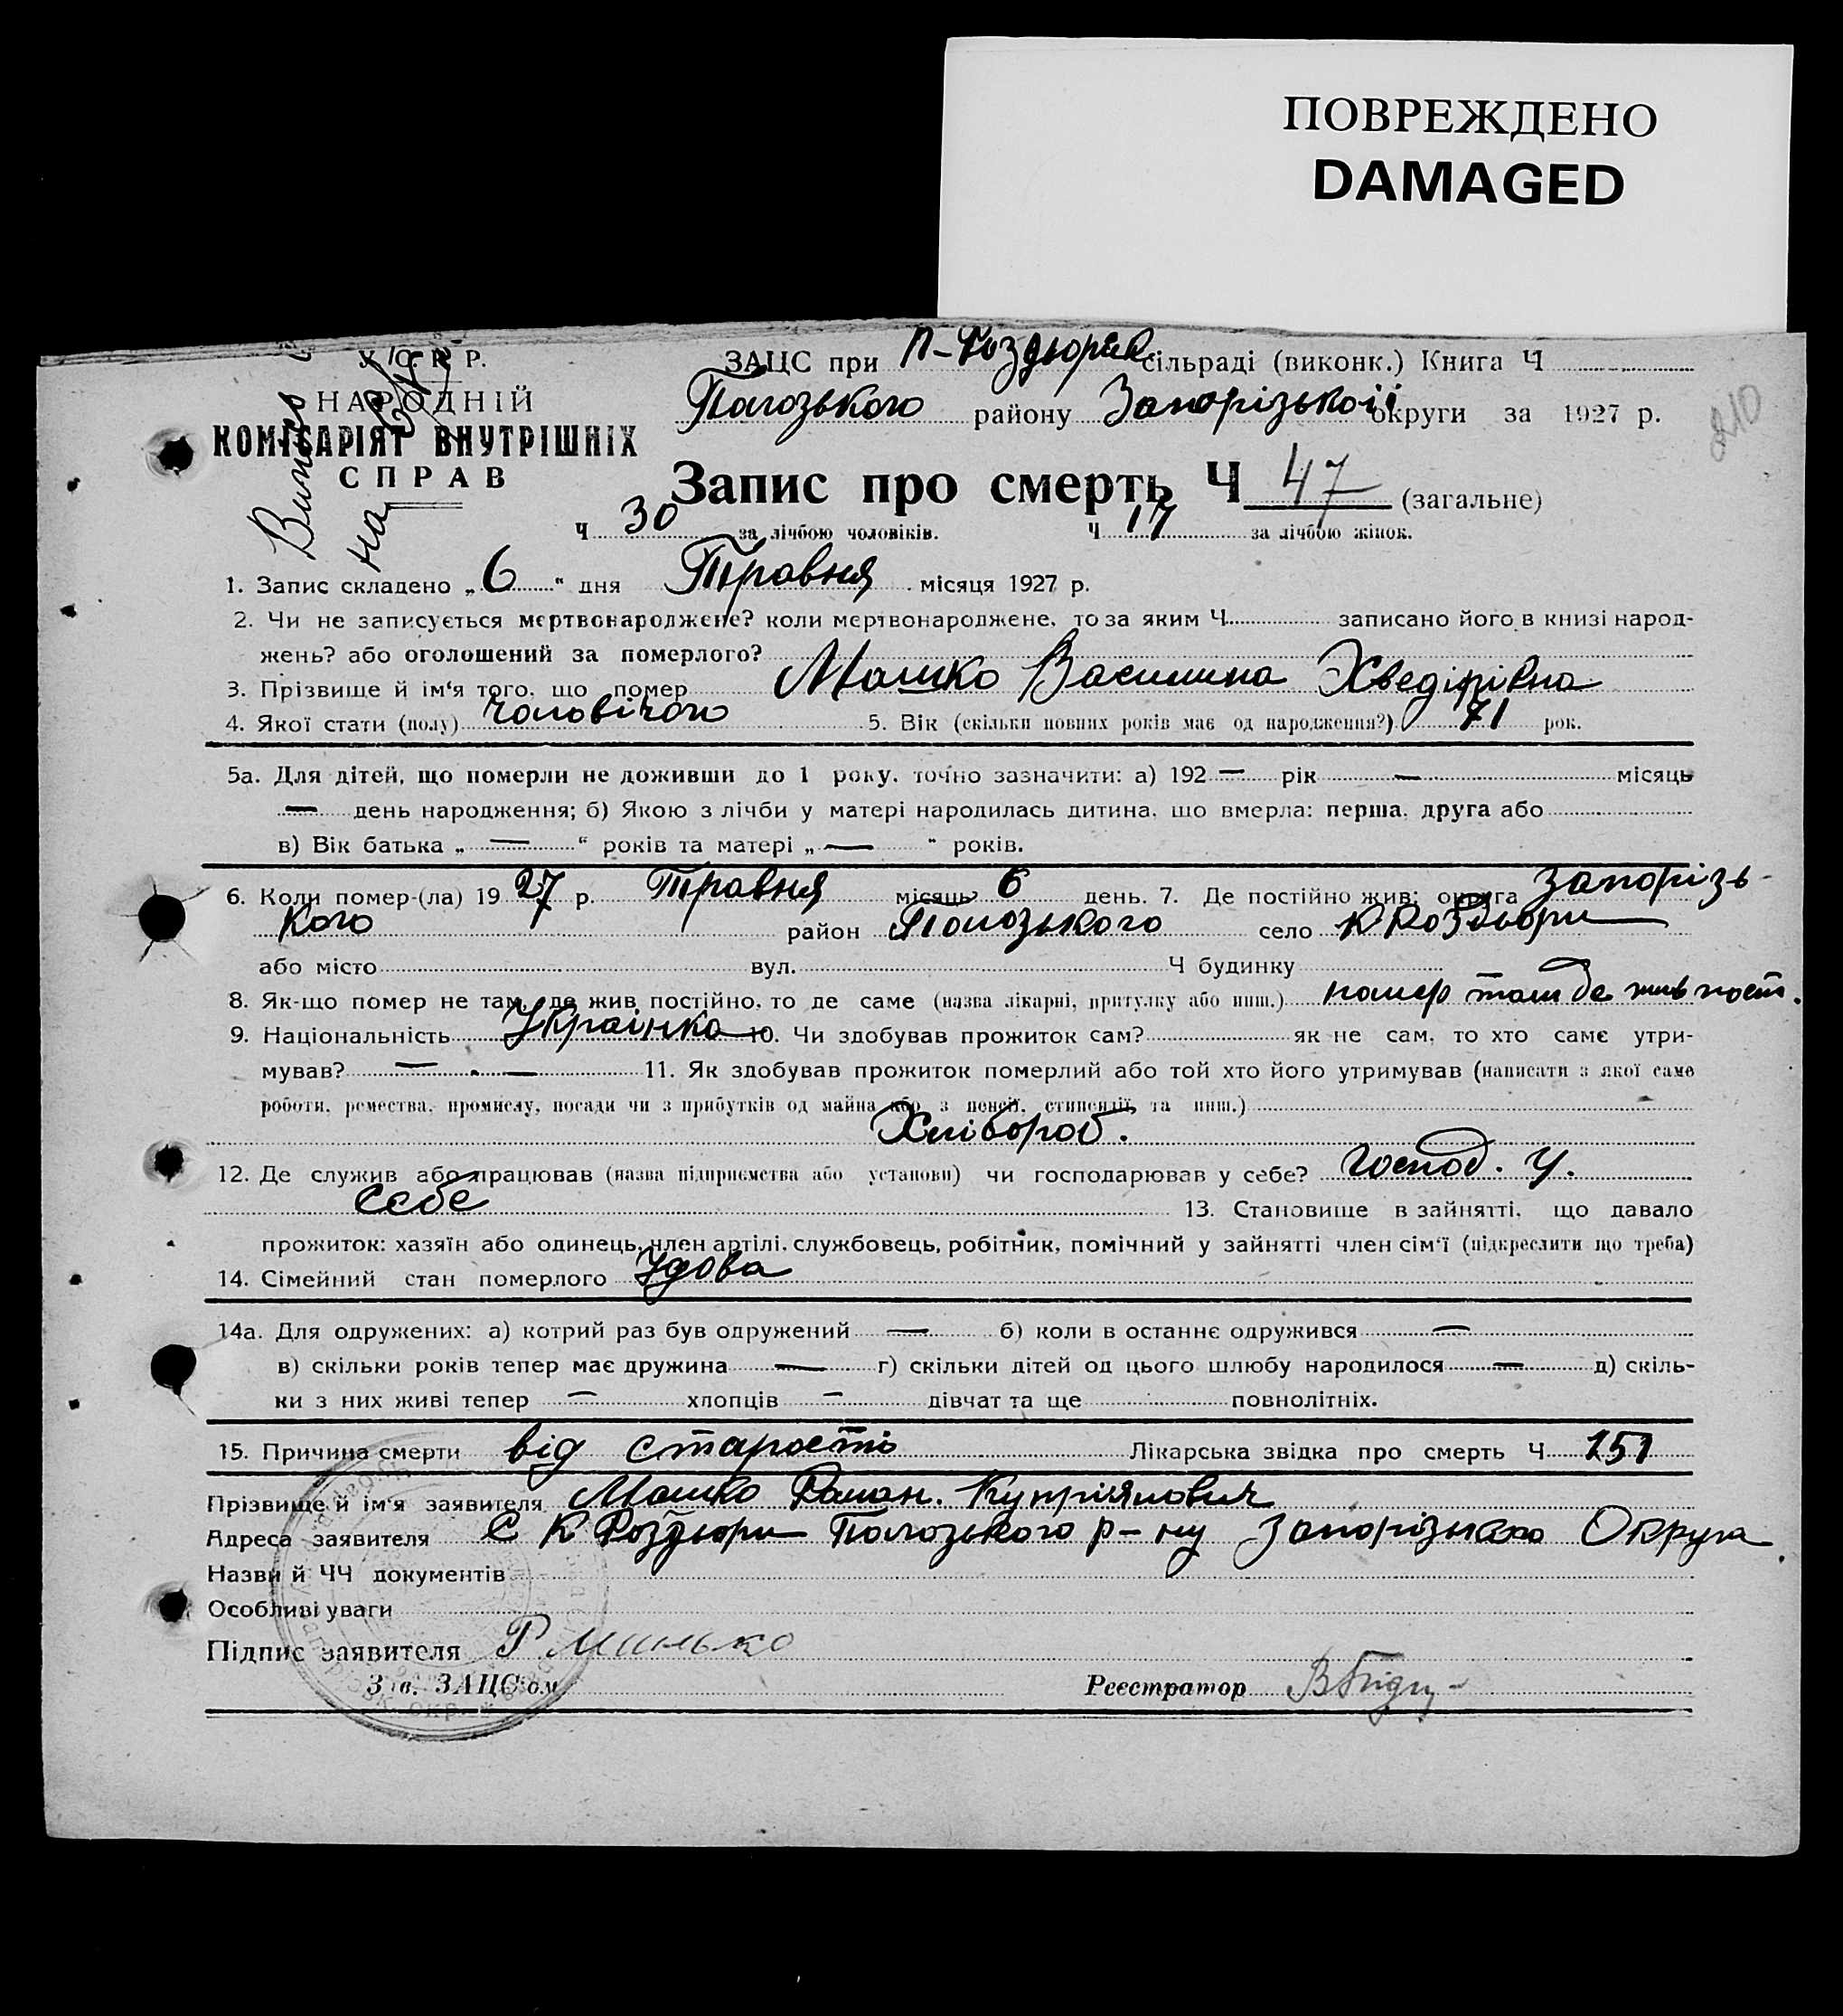 ПОВРЕЖДЕНО
DAMAGED
У. С. Р. Р.
НАРОДНІЙ
КОМІСАРІЯТ ВНУТРІШНІХ
СПРАВ
ЗАЦС при сільраді (виконк.) Книга Ч
Пологзького району Запорізької округи за 1927 р.
210
Запис про смерть Ч 47 (загальне)
Ч 30 за лічбою чоловіків. Ч 17 за лічбою жінок.
на
1. Запис складено „6“ дня Травня місяця 1927 р.
2. Чи не записується мертвонароджене? коли мертвонароджене, то за яким Ч записано його в книзі народ-
жень? або оголошений за померлого?
3. Прізвище й ім'я того, що помер Машко Василина Хведірівна
4. Якої стати (полу) чоловічого 5. Вік (скільки повних років має од народження?) 71 рок.
5а. Для дітей, що померли не доживши до 1 року, точно зазначити: а) 192 — рік — місяць
— день народження; б) Якою з лічби у матері народилась дитина, що вмерла: перша, друга або
в) Вік батька „ — “ років та матері „ — “ років.
6. Коли помер-(ла) 1927 р. Травня місяць 6 день. 7. Де постійно жив: округа Запорізь-
кого район Полозького село К Роздори
або місто вул. Ч будинку
8. Як-що помер не там, де жив постійно, то де саме (назва лікарні, притулку або инш.) помер там де жив пост.
9. Національність Українка 10. Чи здобував прожиток сам? як не сам, то хто саме утри-
мував? — — 11. Як здобував прожиток померлий або той хто його утримував (написати з якої саме
роботи, ремества, промислу, посади чи з прибутків од майна або з пенсії, стипендії та инш.)
Хлібороб.
12. Де служив або працював (назва підприємства або установи) чи господарював у себе? Господ. у.
себе 13. Становище в зайнятті, що давало
прожиток: хазяїн або одинець, член артілі, службовець, робітник, помічний у зайнятті член сім'ї (підкреслити що треба)
14. Сімейний стан померлого Удова
14а. Для одружених: а) котрий раз був одружений — б) коли в останнє одружився —
в) скільки років тепер має дружина — г) скільки дітей од цього шлюбу народилося — д) скіль-
ки з них живі тепер — хлопців — дівчат та ще повнолітніх.
15. Причина смерти від старости Лікарська звідка про смерть Ч 151
Прізвище й ім'я заявителя Машко Роман. Купріянович
Адреса заявителя С К Роздори Полозького р-ну Запорізького Округа.
Назви й ЧЧ документів
Особливі уваги
Підпис заявителя Р
Зав. ЗАЦС'ом Реєстратор